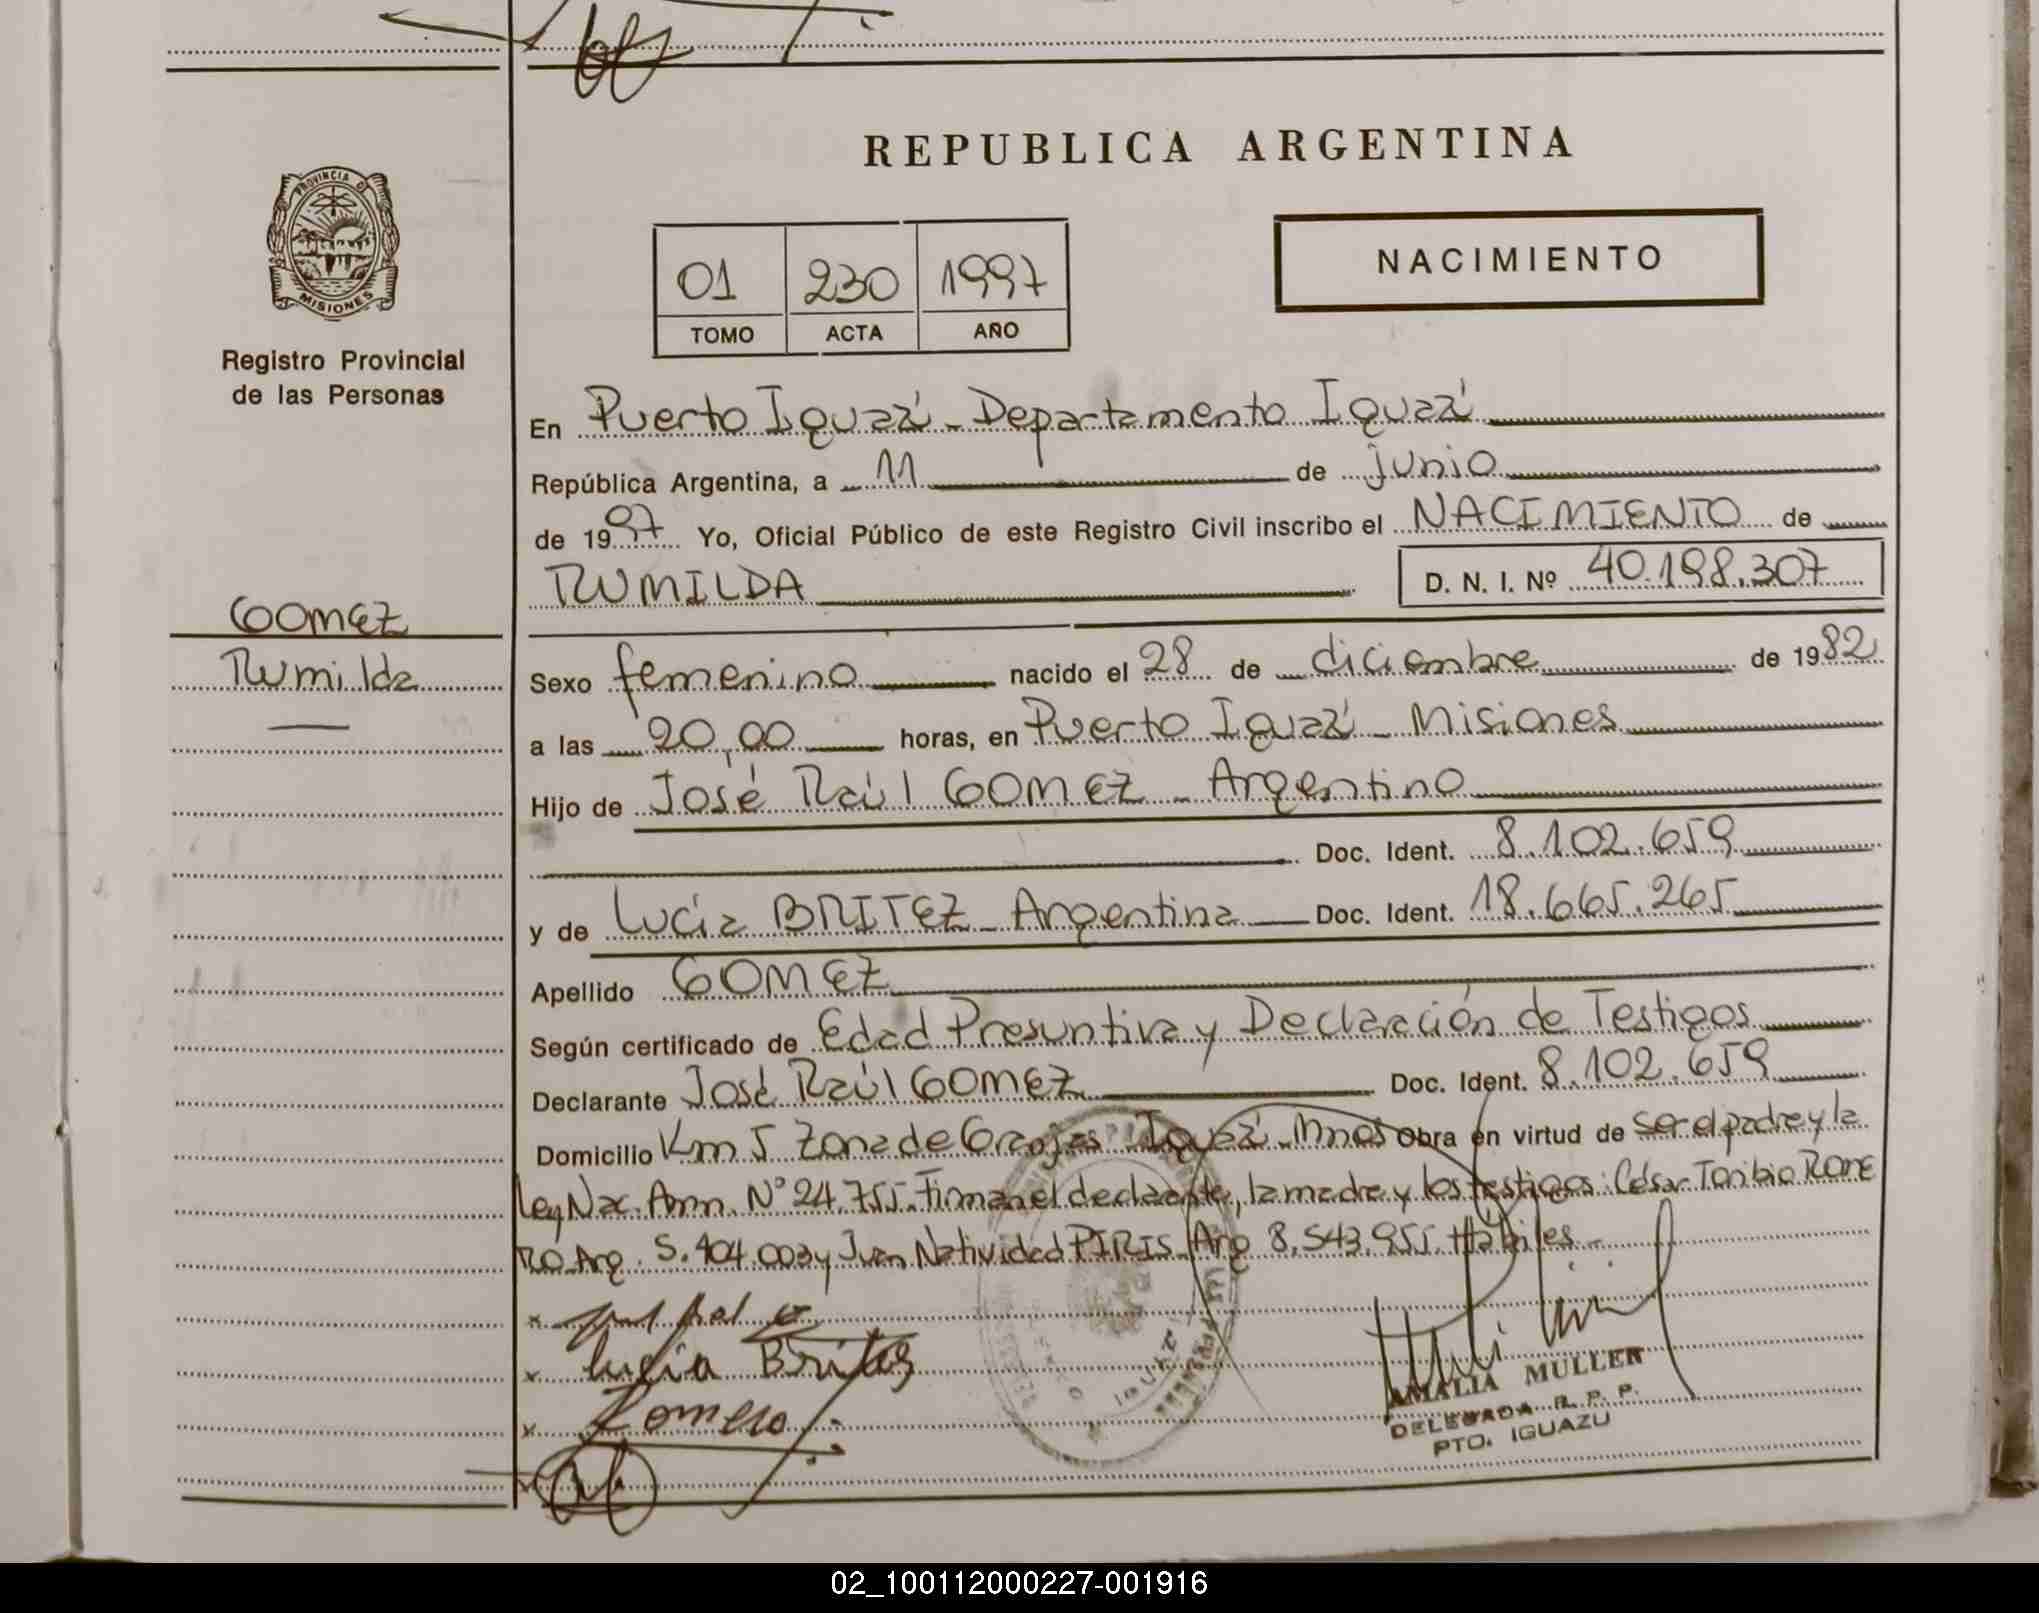 REPUBLICA ARGENTINA
PROVINCIA D
MISIONES
Registro Provincial
de las Personas
01 230 1997
TOMO ACTA AÑO
NACIMIENTO
En Puerto Iguazú - Departamento Iguazú
República Argentina, a 11 de junio
de 1997 Yo, Oficial Público de este Registro Civil inscribo el NACIMIENTO de
RUMILDA D. N. I. Nº 40.198.307
GOMEZ
Rumilda
Sexo femenino nacido el 28 de diciembre de 1982
a las 20,00 horas, en Puerto Iguazú - Misiones
Hijo de José Raúl GOMEZ - Argentino
Doc. Ident. 8.102.659
y de Lucía BRITEZ - Argentina Doc. Ident. 18.665.265
Apellido GOMEZ
Según certificado de Edad Presuntiva y Declaración de Testigos
Declarante José Raúl GOMEZ Doc. Ident. 8.102.659
Domicilio Km 5 Zona de Granjas Iguazú - Mnes Obra en virtud de ser el padre y la
Ley Nac. Arm. Nº 24.755. Firman el declarante, la madre y los testigos: César Toribio ROME
RO Arg. 5.404.003 y Juan Natividad PIRIS Arg 8.543.955. Hábiles -
x
x Lucia Britez
x Romero
x
AMALIA MULLER
DELEGADA R. P. P.
PTO. IGUAZU
02_100112000227-001916